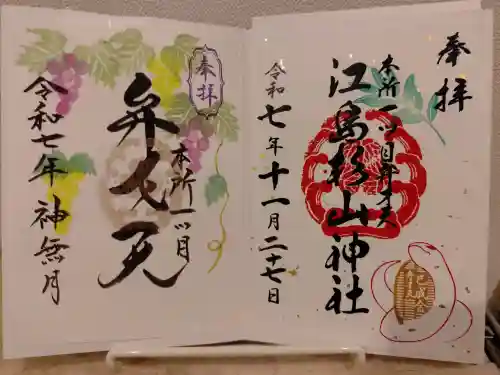 奉拝
本所一ツ目弁才天
江島杉山神社
令和七年十一月二十七日
奉拝
本所一ツ目
弁才天
令和七年神無月